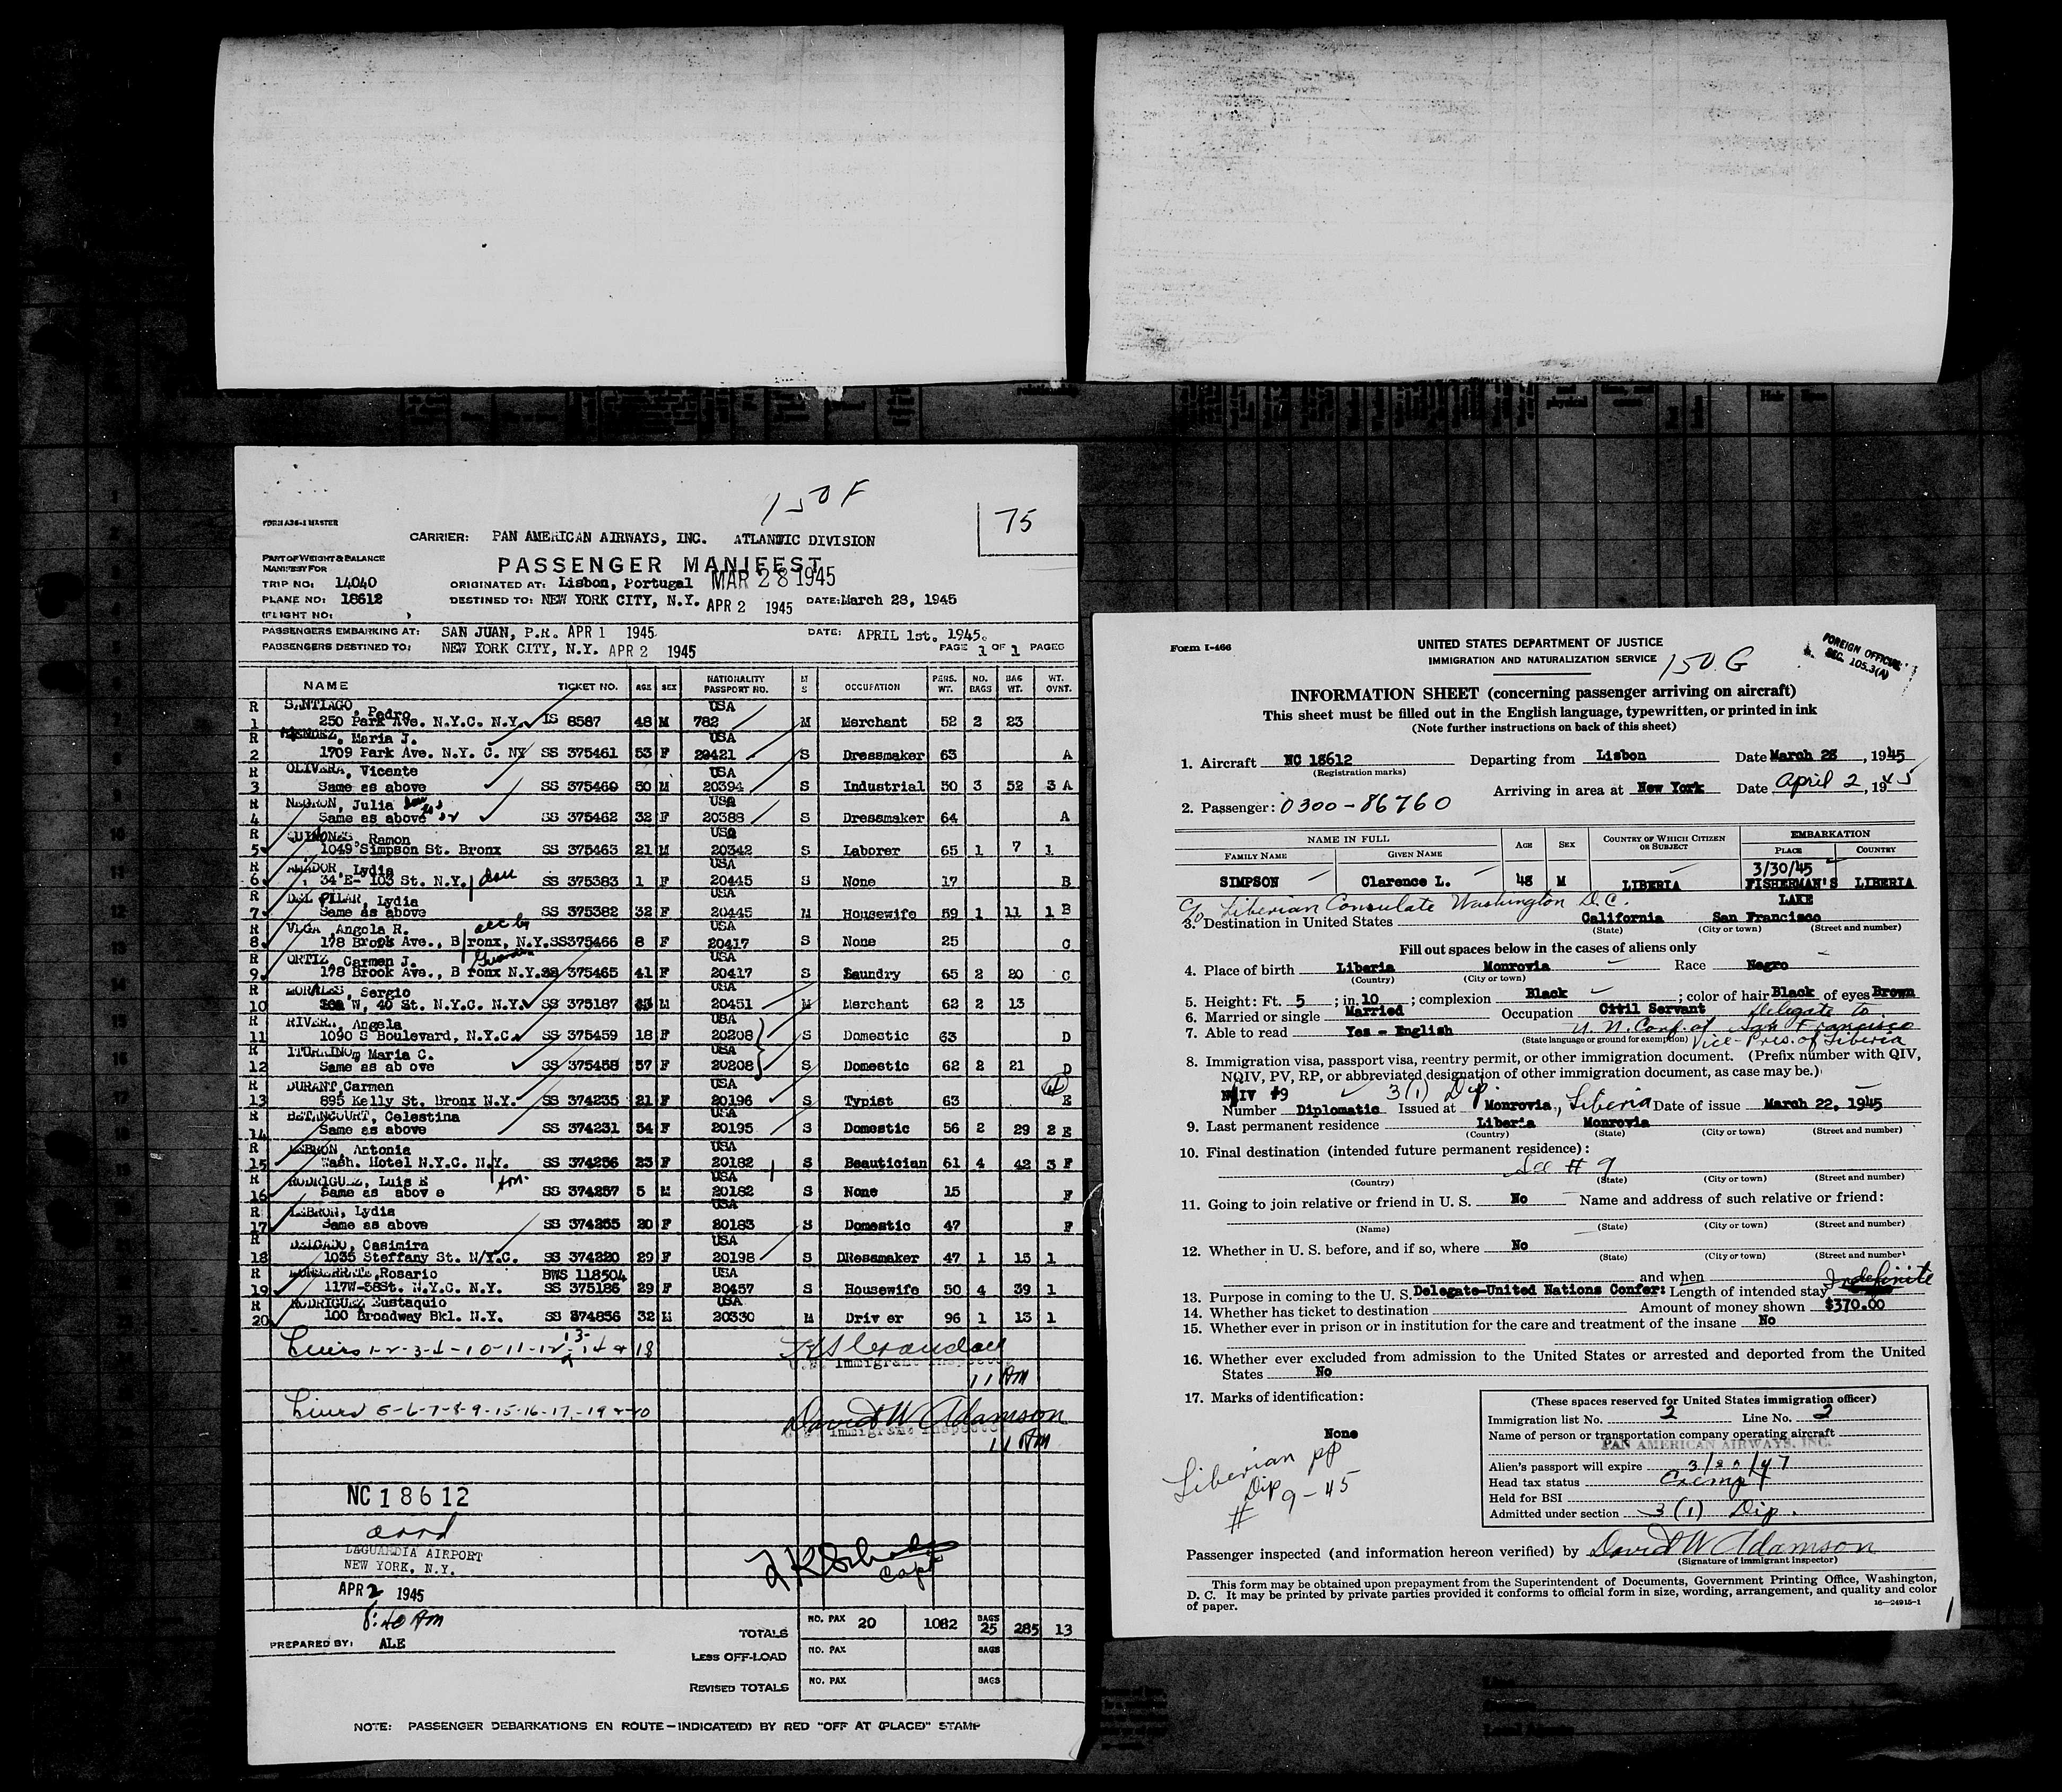 150 F
75
FORM A36-1 MASTER
CARRIER: PAN AMERICAN AIRWAYS, INC. ATLANTIC DIVISION
PART OF WEIGHT & BALANCE
MANIFEST FOR
PASSENGER MANIFEST
TRIP NO: 14040
ORIGINATED AT: Lisbon, Portugal MAR 28 1945
PLANE NO: 18612
DESTINED TO: NEW YORK CITY, N.Y. APR 2 1945 DATE: March 28, 1945
(FLIGHT NO: )
PASSENGERS EMBARKING AT: SAN JUAN, P.R. APR 1 1945 DATE: APRIL 1st. 1945.
PASSENGERS DESTINED TO: NEW YORK CITY, N.Y. APR 2 1945 PAGE 1 OF 1 PAGES
NAME TICKET NO. AGE SEX NATIONALITY PASSPORT NO. M S OCCUPATION PERS. WT. NO. BAGS BAG WT. WT. OVNT.
R SANTIAGO, Pedro USA
1 250 Park Ave. N.Y.C. N.Y. IS 8587 48 M 782 M Merchant 52 2 23
R MENDEZ, Maria J. USA
2 1709 Park Ave. N.Y. C. NY SS 375461 53 F 29421 S Dressmaker 63 A
R OLIVERA, Vicente USA
3 Same as above SS 375460 50 M 20394 S Industrial 50 3 52 3 A
R NEGRON, Julia USA
4 Same as above SS 375462 32 F 20388 S Dressmaker 64 A
R QUINONES, Ramon USA
5 1049 Simpson St. Bronx SS 375463 21 M 20342 S Laborer 65 1 7 1
R AMADOR, Lydia USA
6 34 E- 103 St. N.Y. SS 375383 1 F 20445 S None 17 B
R DEL PILAR, Lydia USA
7 Same as above SS 375382 32 F 20445 M Housewife 59 1 11 1 B
R VEGA, Angola R. acc by USA
8 178 Brook Ave., Bronx, N.Y. SS375466 8 F 20417 S None 25 C
R ORTIZ, Carmen J. Guardian USA
9 178 Brook Ave., B ronx N.Y. SS 375465 41 F 20417 S Laundry 65 2 20 C
R MORALES, Sergio USA
10 W, 40 St. N.Y.C. N.Y. SS 375187 M 20451 M Merchant 62 2 13
R RIVERA, Angela USA
11 1090 S Boulevard, N.Y.C. SS 375459 18 F 20208 S Domestic 63 D
R ITURRINO, Maria C. USA
12 Same as ab ove SS 375458 57 F 20208 S Domestic 62 2 21 D
R DURANT, Carmen USA
13 895 Kelly St. Bronx N.Y. SS 374235 21 F 20196 S Typist 63 E
R BETANCOURT, Celestina USA
14 Same as above SS 374231 54 F 20195 S Domestic 56 2 29 2 E
R LEBRON, Antonia USA
15 Wash. Hotel N.Y.C. N.Y. SS 374256 23 F 20182 S Beautician 61 4 42 3 F
R RODRIGUEZ, Luis E USA
16 Same as abov e son SS 374257 5 M 20182 S None 15 F
R LEBRON, Lydia USA
17 Same as above SS 374255 20 F 20183 S Domestic 47 F
R DELGADO, Casimira USA
18 1035 Steffany St. N.Y.C. SS 374220 29 F 20198 S DRessmaker 47 1 15 1
R Rosario BWS 118504 USA
19 117W-58St. N.Y.C. N.Y. SS 375186 29 F 20457 S Housewife 50 4 39 1
R RODRIGUEZ Eustaquio USA
20 100 Broadway Bkl. N.Y. SS 374856 32 M 20330 M Driv er 96 1 13 1
Lines 1-2-3-4-10-11-12-13-14 & 18
U.S. Immigrant Inspector
11 AM
Lines 5-6-7-8-9-15-16-17-19 & 20
David W Adamson
U.S. Immigrant Inspector
11 AM
NC 18612
arrd
LAGUARDIA AIRPORT
NEW YORK, N.Y.
Capt
APR 2 1945
8:40 AM
PREPARED BY: ALE
TOTALS NO. PAX 20 1082 BAGS 25 285 13
LESS OFF-LOAD NO. PAX BAGS
REVISED TOTALS NO. PAX BAGS
NOTE: PASSENGER DEBARKATIONS EN ROUTE—INDICATE(D) BY RED "OFF AT (PLACE)" STAMP
Form I-466
UNITED STATES DEPARTMENT OF JUSTICE
IMMIGRATION AND NATURALIZATION SERVICE
150 G
FOREIGN OFFICIAL
SEC. 105.3(A)
INFORMATION SHEET (concerning passenger arriving on aircraft)
This sheet must be filled out in the English language, typewritten, or printed in ink
(Note further instructions on back of this sheet)
1. Aircraft NC 18612 Departing from Lisbon Date March 28, 1945
(Registration marks)
Arriving in area at New York Date April 2, 1945
2. Passenger: 0300-86760
NAME IN FULL AGE SEX COUNTRY OF WHICH CITIZEN OR SUBJECT EMBARKATION
FAMILY NAME GIVEN NAME PLACE COUNTRY
3/30/45
SIMPSON Clarence L. 48 M LIBERIA FISHERMAN'S LIBERIA
LAKE
c/o Liberian Consulate Washington D.C.
3. Destination in United States California San Francisco
(State) (City or town) (Street and number)
Fill out spaces below in the cases of aliens only
4. Place of birth Liberia Monrovia Race Negro
(Country) (City or town)
5. Height: Ft. 5; in. 10; complexion Black; color of hair Black of eyes Brown
6. Married or single Married Occupation Civil Servant Delegate to
7. Able to read Yes - English U.N. Conf. at San Francisco
(State language or ground for exemption) Vice-Pres. of Liberia
8. Immigration visa, passport visa, reentry permit, or other immigration document. (Prefix number with QIV,
NQIV, PV, RP, or abbreviated designation of other immigration document, as case may be.)
#9 3(1) Dip
Number Diplomatic Issued at Monrovia, Liberia Date of issue March 22, 1945
9. Last permanent residence Liberia Monrovia
(Country) (State) (City or town) (Street and number)
10. Final destination (intended future permanent residence):
See # 9
(Country) (State) (City or town) (Street and number)
11. Going to join relative or friend in U. S. No Name and address of such relative or friend:
(Name) (State) (City or town) (Street and number)
12. Whether in U. S. before, and if so, where No
(State) (City or town) (Street and number)
and when
13. Purpose in coming to the U. S. Delegate-United Nations Confer: Length of intended stay Indefinite
14. Whether has ticket to destination Amount of money shown $370.00
15. Whether ever in prison or in institution for the care and treatment of the insane No
16. Whether ever excluded from admission to the United States or arrested and deported from the United
States No
17. Marks of identification:
None
Liberian pp
Dip
# 9-45
(These spaces reserved for United States immigration officer)
Immigration list No. 2 Line No. 2
Name of person or transportation company operating aircraft
PAN AMERICAN AIRWAYS, INC.
Alien's passport will expire 3/20/47
Head tax status Exempt
Held for BSI
Admitted under section 3(1) Dip.
Passenger inspected (and information hereon verified) by David W Adamson
(Signature of immigrant inspector)
This form may be obtained upon prepayment from the Superintendent of Documents, Government Printing Office, Washington,
D. C. It may be printed by private parties provided it conforms to official form in size, wording, arrangement, and quality and color
of paper.
16—24915-1
1